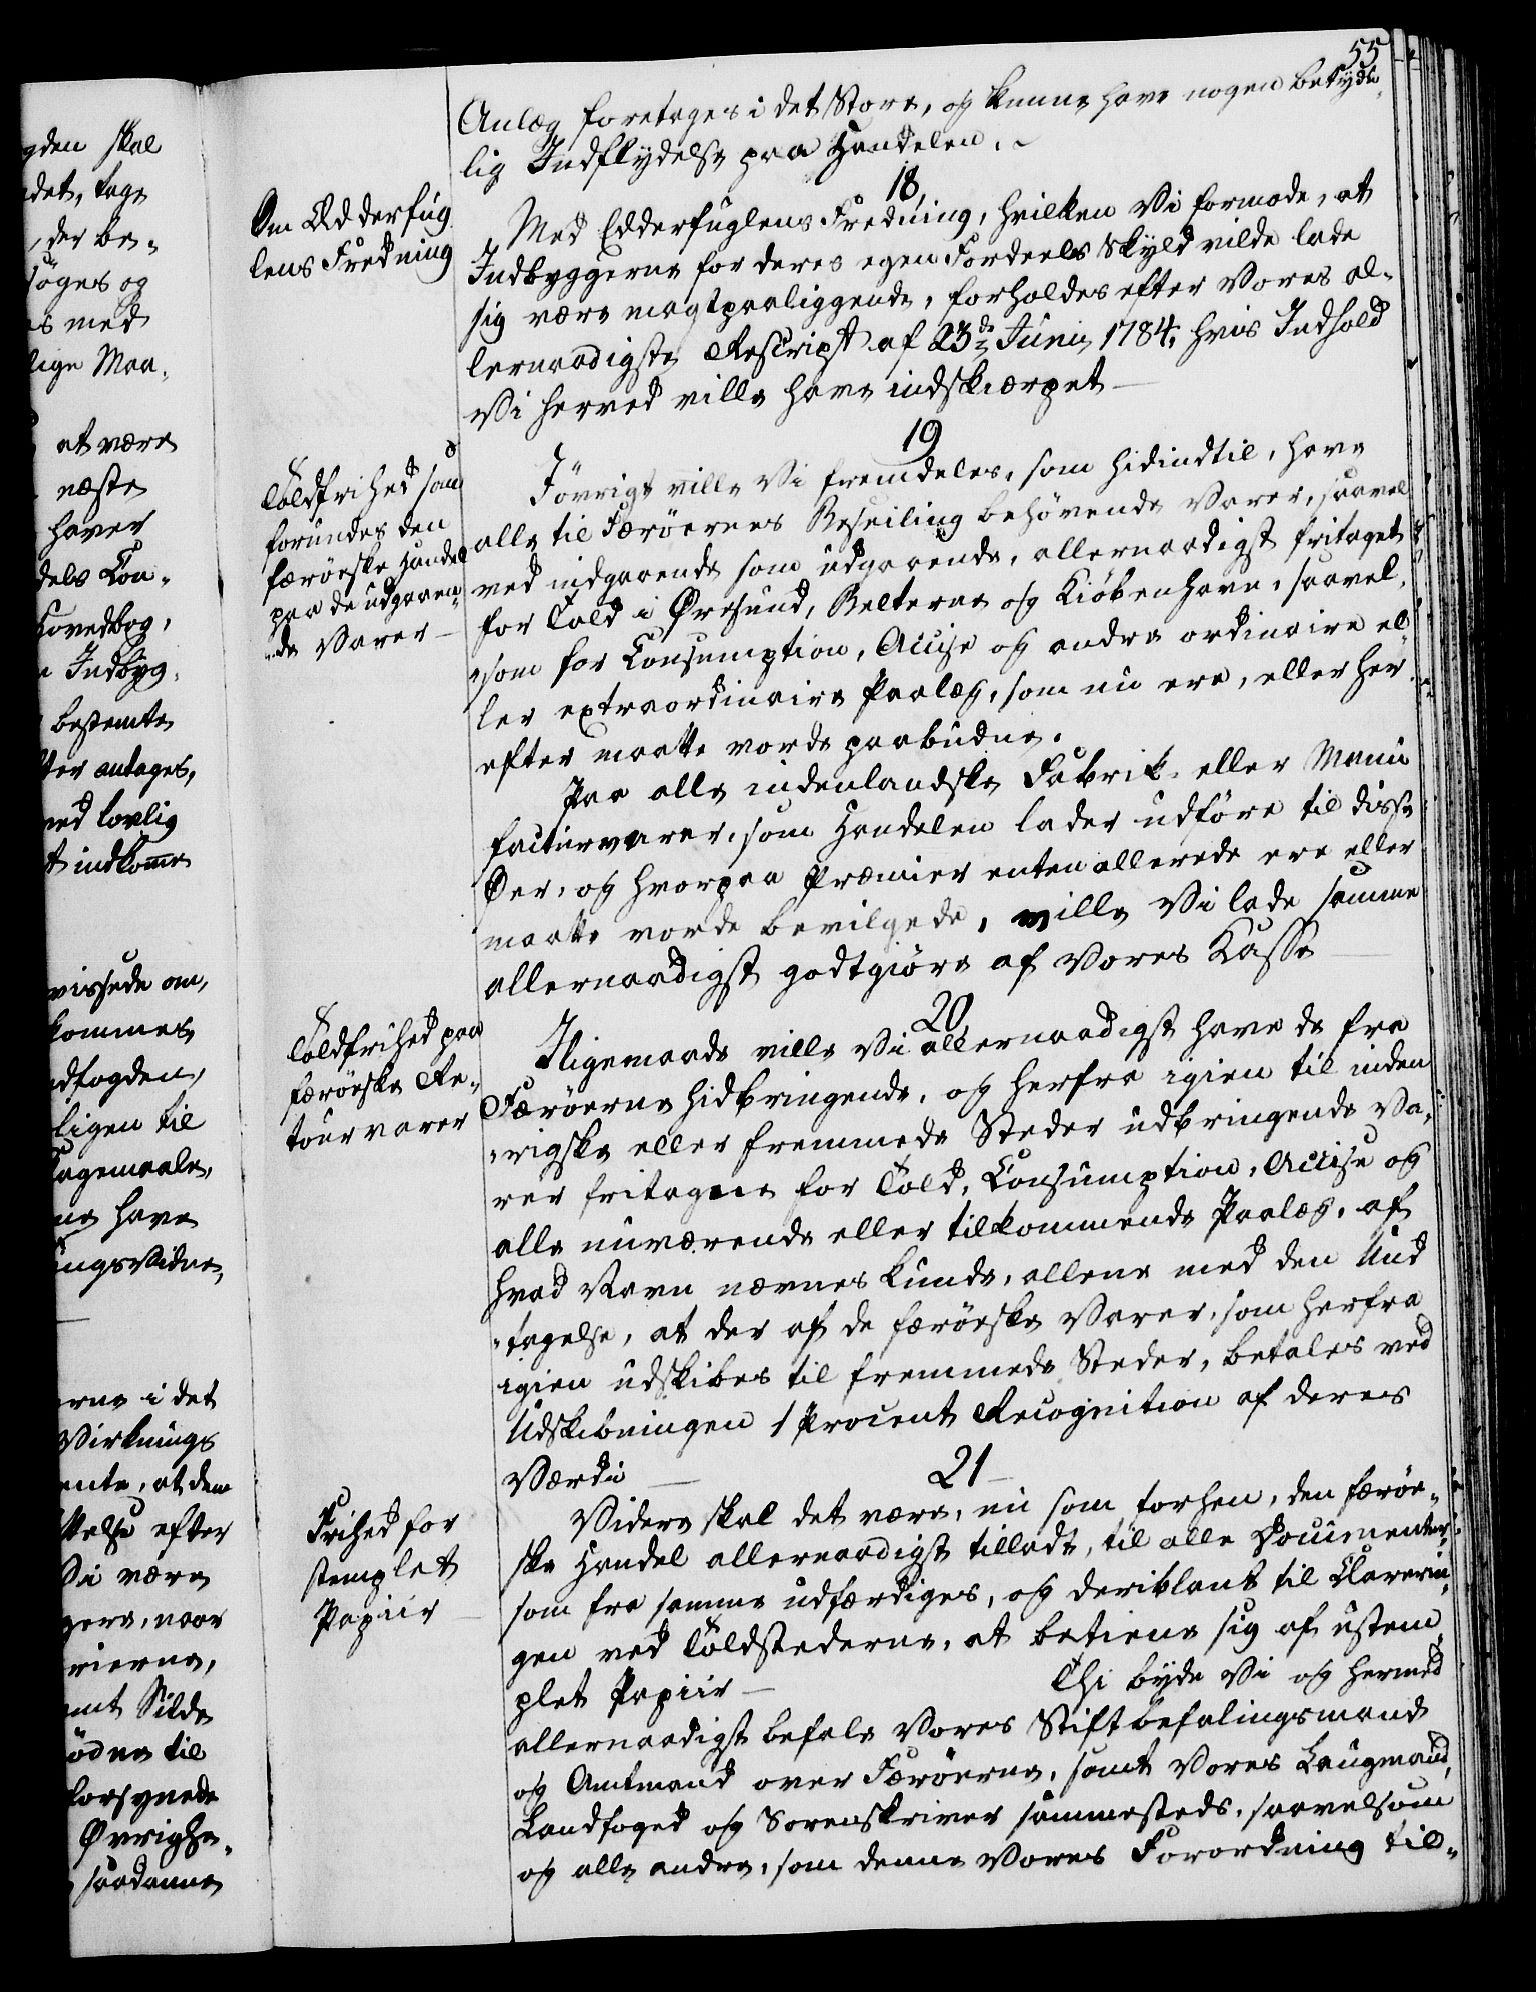 55
Anlæg foretages i det Store, og kunne have nogen betyde-
lig Indflydelse paa Handelen. ~
18,
Om Edderfug
lens Fredning
Med Edderfuglens Fredning, hvilken Vi formode, at
Indbyggerne for deres egen Fordeels Skyld vilde lade
sig være magtpaaliggende, forholdes efter Vores al-
lernaadigste Rescript af 23de Junii 1784, hvis Indhold
Vi herved ville have indskiærpet —
19
Toldfrihed som
forundes den
færöeske Handel
paa de udgaaen-
de Varer —
Iövrigt ville Vi fremdeles, som hidindtil, have
alle til Færöernes Beseiling behövende Varer, saavel
ved indgaaende som udgaaende, allernaadigst fritaget
for Told i Øresund, Belterne og Kiöbenhavn, saavel,
som for Consumption, Accise og andre ordinaire el-
ler extraordinaire Paalæg, som nu ere, eller her-
efter maatte vorde paabudne.
Paa alle indenlandske Fabrik- eller Manu
facturvarer, som Handelen lader udföre til disse
Öer, og hvorpaa Præmier enten allerede ere eller
maatte vorde bevilgede, ville Vi lade samme
allernaadigst godtgiöre af Vores Kasse —
20
Toldfrihed paa
færöeske Re-
tourvarer
Iligemaade ville Vi allernaadigst have de fra
Færöerne hidbringende, og herfra igien til inden
rigske eller fremmede Steder udbringende Va-
rer fritagne for Told, Consumption, Accise og
alle nuværende eller tilkommende Paalæg, af
hvad Navn nævnes kunde, allene med den Und
tagelse, at der af de færöeske Varer, som herfra
igien udskibes til fremmede Steder, betales ved
Udskibningen 1 Procent Recognition af deres
Værdi —
21
Frihed for
stemplet
Papiir —
Videre skal det være, nu som forhen, den færöe-
ske Handel allernaadigst tilladt, til alle Documenter,
som fra samme udfærdiges, og deriblant til Clarerin-
gen ved Toldstederne, at betiene sig af ustem-
plet Papiir — Thi byde Vi og hermed
allernaadigst befale Vores Stiftbefalingsmand
og Amtmand over Færöerne, samt Vores Laugmand,
Landfoged og Sorenskriver sammesteds, saavelsom
og alle andre, som denne Vores Forordning til-
gden skal
det, tage
der be-
söges og
es med
lige Maa-
at være
næste
haver
dels Con-
Hovedbog,
Indbyg-
bestemte
ter antages,
ved lovlig
t indkomme
vissede om,
kommes
ndfogden,
ligen til
Tagemaale,
ne have
ingsvidne-
erne i det
Virknings
ente, at dem
kelse efter
Vi være
gere, naar
rierne,
mt Silde
ödne til
forsynede
Øvrighe-
saadanne